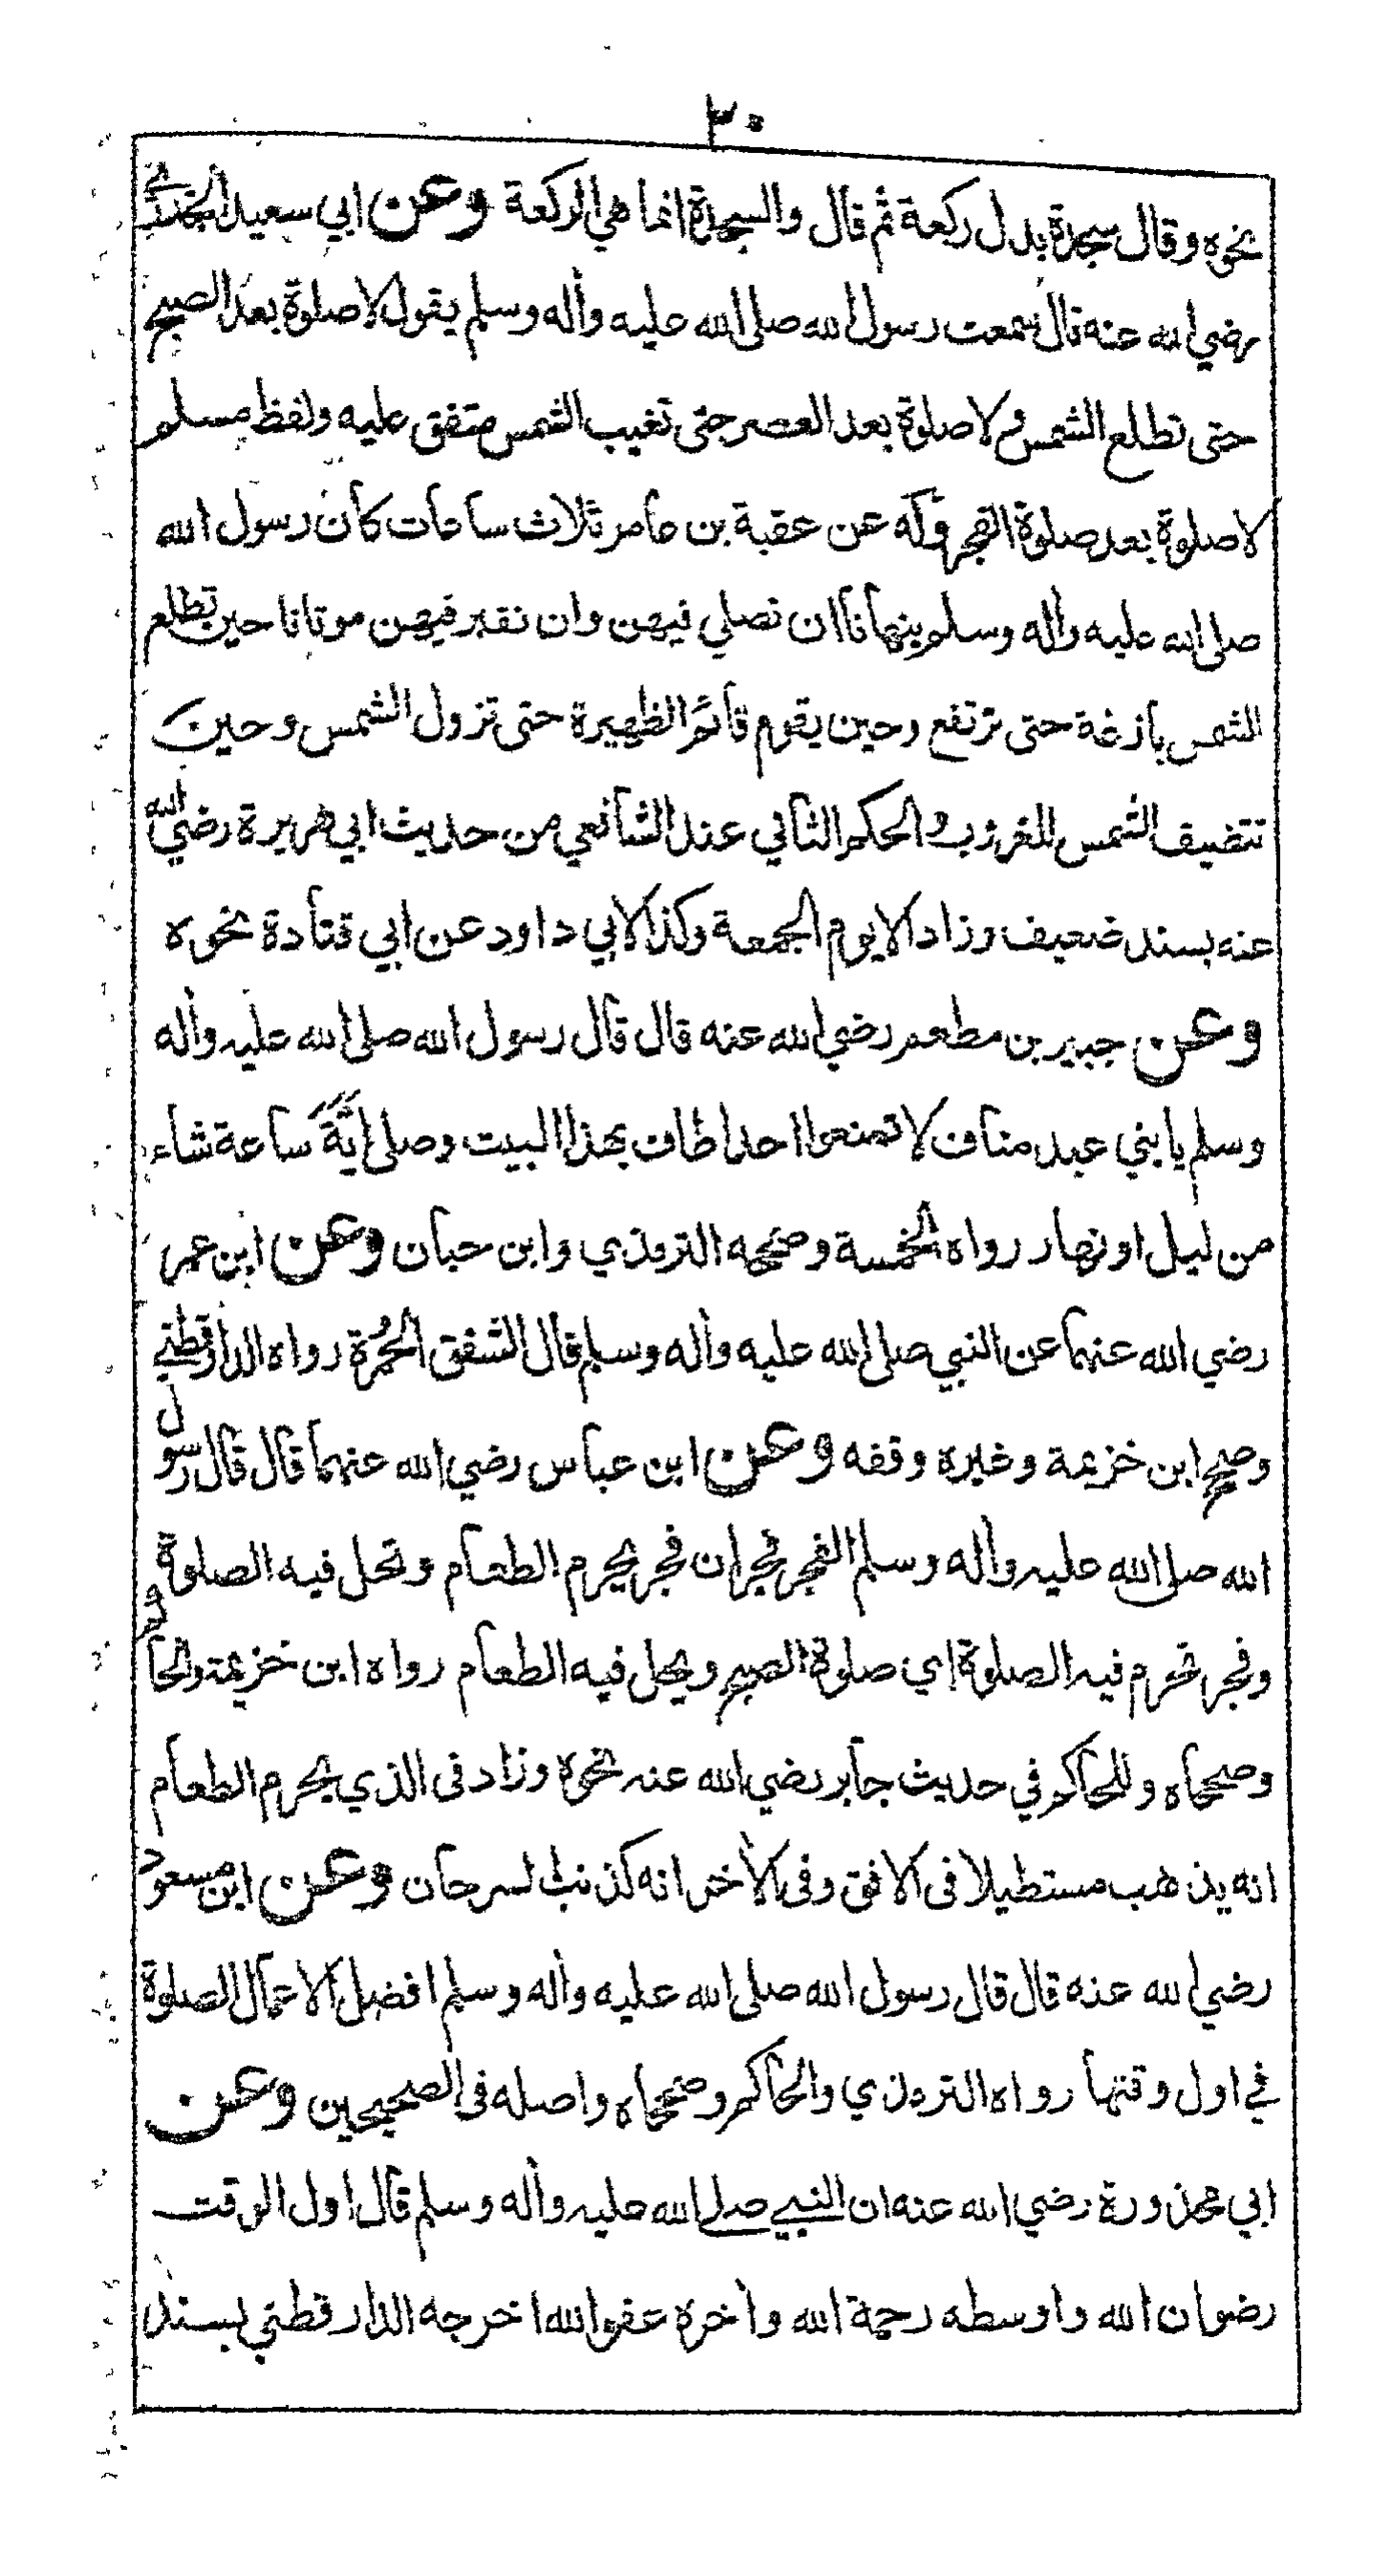 ٣٠
نحوه وقال سجدة بدل ركعة ثم قال والسجدة انما هي الركعة وعن ابي سعيد الخدري
رضي الله عنه قال سمعت رسول الله صلى الله عليه وأله وسلم يقول لاصلوة بعد الصبح
حتى تطلع الشمس ولاصلوة بعد العصر حتى تغيب الشمس متفق عليه ولفظ مسلم
لاصلوة بعد صلوة الفجر وله عن عقبة بن عامر ثلاث ساعات كان رسول الله
صلى الله عليه وأله وسلم ينهانا ان نصلي فيهن وان نقبر فيهن موتانا حين تطلع
الشمس بازغة حتى ترتفع وحين يقوم قائم الظهيرة حتى تزول الشمس وحين
تتضيف الشمس للغروب والحكم الثاني عند الشافعي من حديث ابي هريرة رضي الله
عنه بسند ضعيف وزاد الا يوم الجمعة وكذا لابي داود عن ابي قتادة نحوه
وعن جبير بن مطعم رضي الله عنه قال قال رسول الله صلى الله عليه وأله
وسلم يا بني عبد مناف لا تمنعوا احدا طاف بهذا البيت وصلى ايَّةَ ساعة شاء
من ليل او نهار رواه الخمسة وصححه الترمذي وابن حبان وعن ابن عمر
رضي الله عنهما عن النبي صلى الله عليه وأله وسلم قال الشفق الحُمرة رواه الدارقطني
وصحح ابن خزيمة وغيره وقفه وعن ابن عباس رضي الله عنهما قال قال رسول
الله صلى الله عليه وأله وسلم الفجر فجران فجر يحرم الطعام وتحل فيه الصلوة
وفجر تحرم فيه الصلوة اي صلوة الصبح ويحل فيه الطعام رواه ابن خزيمة والحاكم
وصححاه وللحاكم في حديث جابر رضي الله عنه نحوه وزاد فى الذي يحرم الطعام
انه يذهب مستطيلا فى الافق وفى الأخر انه كذنب السرحان وعن ابن مسعود
رضي الله عنه قال قال رسول الله صلى الله عليه وأله وسلم افضل الاعمال الصلوة
في اول وقتها رواه الترمذي والحاكم وصححاه واصله فى الصحيحين وعن
ابي محذورة رضي الله عنه ان النبي صلى الله عليه وأله وسلم قال اول الوقت
رضوان الله واوسطه رحمة الله وأخره عفو الله اخرجه الدارقطني بسند